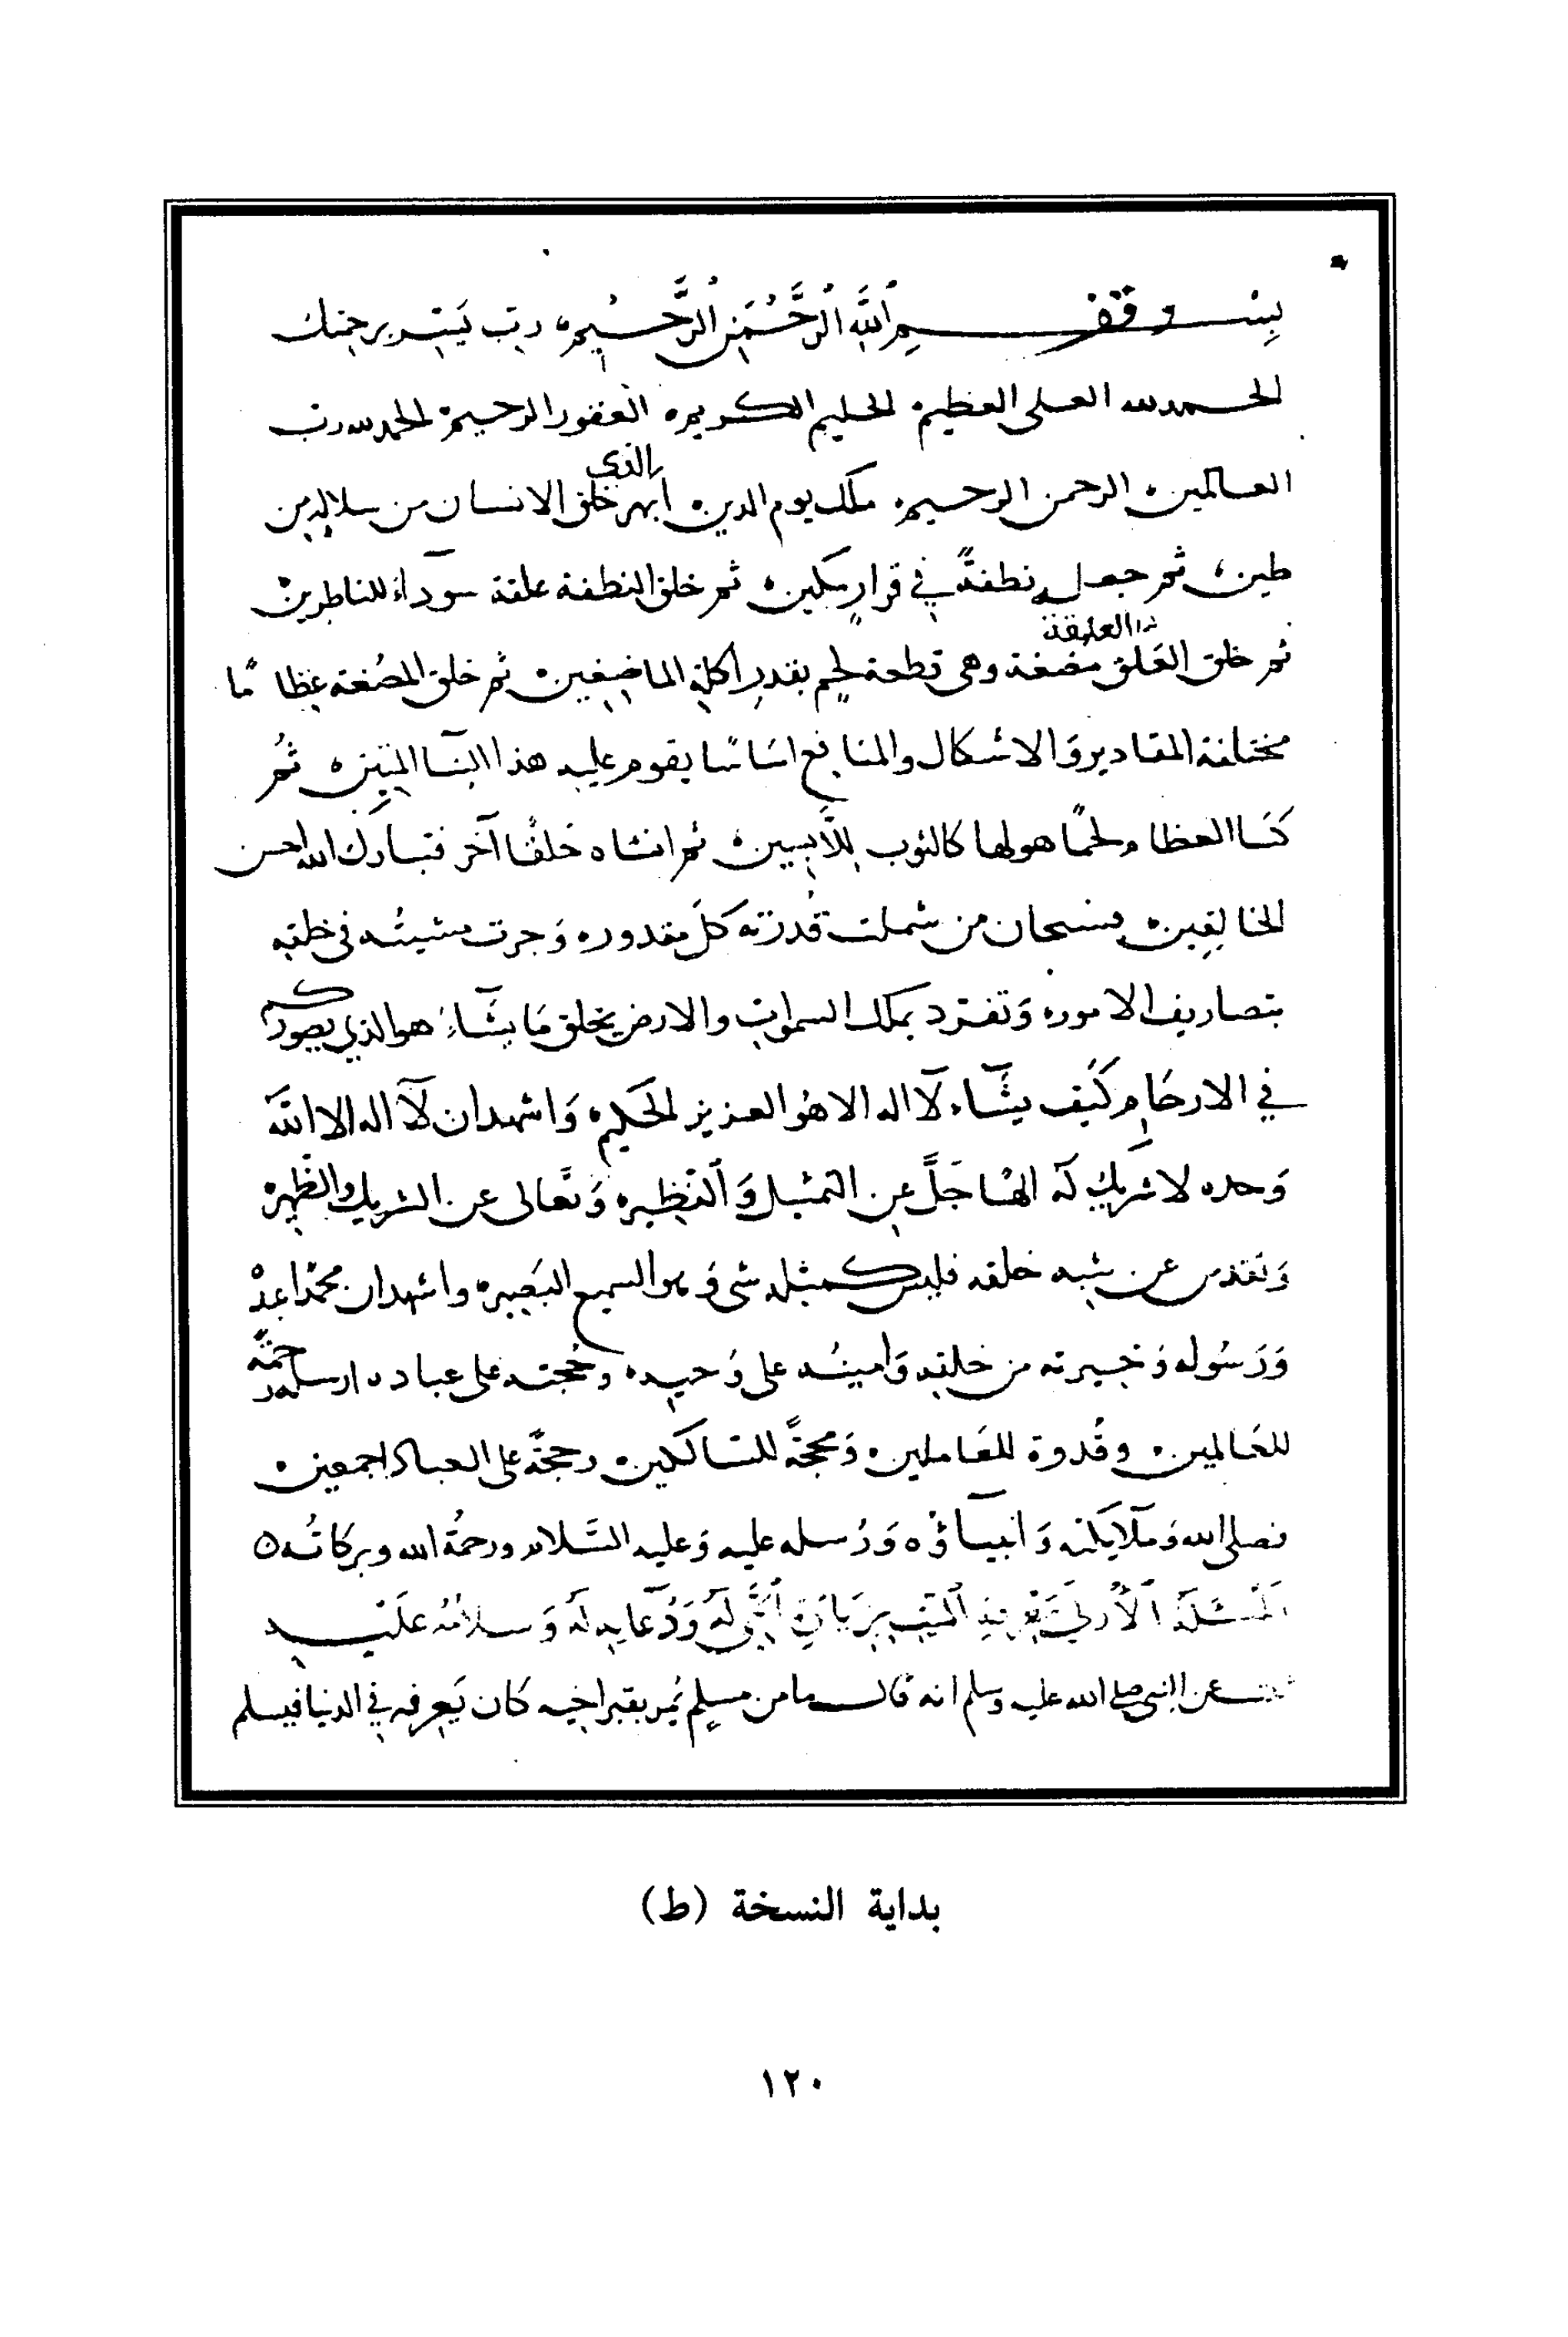 بسم الله الرحمن الرحيم ه رب يسر برحمتك
وقف
الحمد لله العلى العظيم ه الحليم الكريم ه الغفور الرحيم ه الحمد لله رب
العالمين ه الرحمن الرحيم ه ملك يوم الدين ه الذى خلق الانسان من سلالة من
طين ه ثم جعله نطفةً في قرارٍ مكين ه ثم خلق النطفة علقة سوداء للناظرين
ثم خلق العلقة مضغة وهى قطعة لحم بقدر اكلة الماضغين ه ثم خلق المضغة عظاما
مختلفة المقادير وَالاشكال والمنافع اسَاسًا يقوم عليه هذا البنا المبين ه ثم
كسَا العظام لحمًا هو لها كالثوب للّابسين ه ثم انشاه خلقًا آخر فتبارك الله احسن
الخالقين ه فسبحان من شملت قُدرته كلَ مقدور ه وَجرت مشيئته في خلقه
بتصاريف الامور ه وَتفرّد بملك السموات والارض يخلق مَا يشَاءُ هو الذي يصوركم
في الارحَام كَيف يشَاء لآ اله الا هُو العزيز الحَكيم ه وَاشهد ان لآ اله الا الله
وَحده لا شريك لَه الهًا جَلَّ عن المثيل وَالنظير ه وَتعَالى عن الشريك والظهير ه
وَتقدس عن شبه خلقه فليس كمثله شى وَهو السميع البَصير ه واشهد ان محمدًا عبده
وَرَسُوله وَخيرته من خلقه وَامينُه على وَحيه ه وحُجته على عباده ارسله رحمةً
للعَالمين ه وقُدوة للعَاملين ه وَمحجّةً للسَالكين ه وحجةً على العباد اجمعين ه
فصلى الله وَملآيكته وَانبيآؤه وَرُسله عليه وَعليه السَّلام ورحمةُ الله وبركاتُه ه
المسئلة الأولى وَسلامه عَليه
عن النبى صلى الله عليه وسلم انه قال ما من مسلم يمر بقبر اخيه كان يَعرفه في الدنيا فيسلم
بداية النسخة (ط)
١٢٠